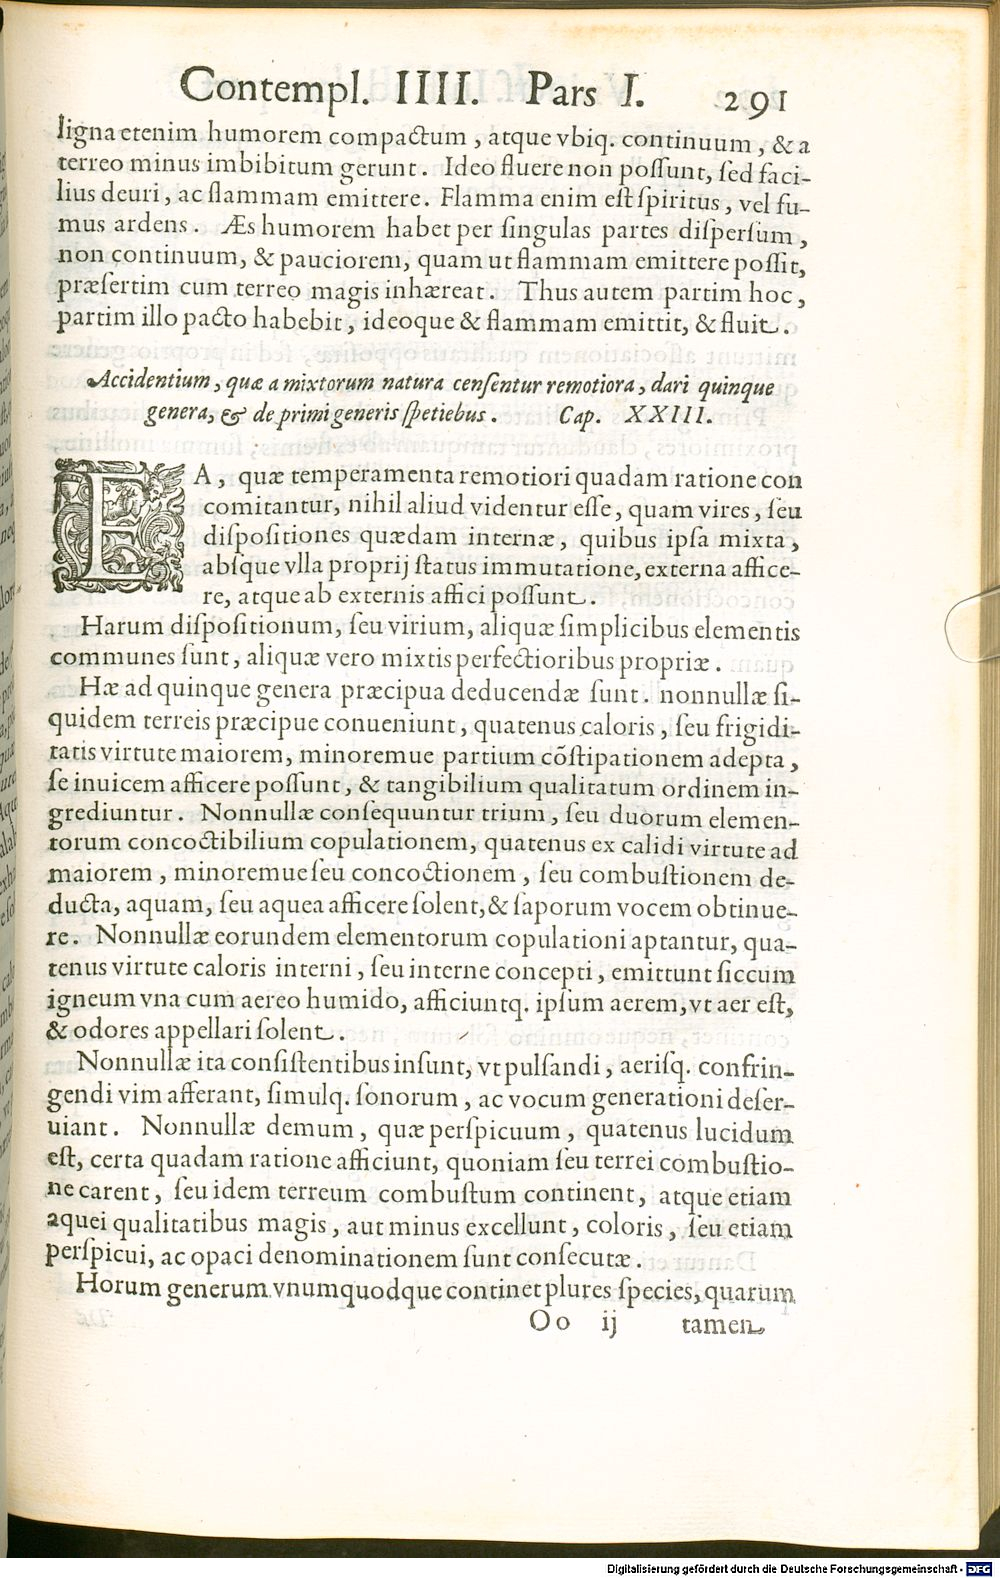 Contempl. IIII. Pars I. 291
ligna etenim humorem compactum, atque vbiq. continuum, & a
terreo minus imbibitum gerunt. Ideo fluere non poſſunt, ſed faci-
lius deuri, ac flammam emittere. Flamma enim eſt ſpiritus, vel fu-
mus ardens. Æs humorem habet per ſingulas partes diſperſum,
non continuum, & pauciorem, quam ut flammam emittere poſſit,
præſertim cum terreo magis inhæreat. Thus autem partim hoc,
partim illo pacto habebit, ideoque & flammam emittit, & fluit.
Accidentium, quæ a mixtorum natura cenſentur remotiora, dari quinque
genera, & de primi generis ſpetiebus. Cap. XXIII.
EA, quæ temperamenta remotiori quadam ratione con
comitantur, nihil aliud videntur eſſe, quam vires, ſeu
diſpoſitiones quædam internæ, quibus ipſa mixta,
abſque vlla proprij ſtatus immutatione, externa affice-
re, atque ab externis affici poſſunt.
Harum diſpoſitionum, ſeu virium, aliquæ ſimplicibus elementis
communes ſunt, aliquæ vero mixtis perfectioribus propriæ.
Hæ ad quinque genera præcipua deducendæ ſunt. nonnullæ ſi-
quidem terreis præcipue conueniunt, quatenus caloris, ſeu frigidi-
tatis virtute maiorem, minoremue partium cõſtipationem adepta,
ſe inuicem afficere poſſunt, & tangibilium qualitatum ordinem in-
grediuntur. Nonnullæ conſequuntur trium, ſeu duorum elemen-
torum concoctibilium copulationem, quatenus ex calidi virtute ad
maiorem, minoremue ſeu concoctionem, ſeu combuſtionem de-
ducta, aquam, ſeu aquea afficere ſolent, & ſaporum vocem obtinue-
re. Nonnullæ eorundem elementorum copulationi aptantur, qua-
tenus virtute caloris interni, ſeu interne concepti, emittunt ſiccum
igneum vna cum aereo humido, afficiuntq. ipſum aerem, vt aer eſt,
& odores appellari ſolent.
Nonnullæ ita conſiſtentibus inſunt, vt pulſandi, aeriſq. confrin-
gendi vim afferant, ſimulq. ſonorum, ac vocum generationi deſer-
uiant. Nonnullæ demum, quæ perſpicuum, quatenus lucidum
eſt, certa quadam ratione afficiunt, quoniam ſeu terrei combuſtio-
ne carent, ſeu idem terreum combuſtum continent, atque etiam
aquei qualitatibus magis, aut minus excellunt, coloris, ſeu etiam
perſpicui, ac opaci denominationem ſunt conſecutæ.
Horum generum vnumquodque continet plures ſpecies, quarum
Oo ij tamen
Digitalisierung gefördert durch die Deutsche Forschungsgemeinschaft - DFG